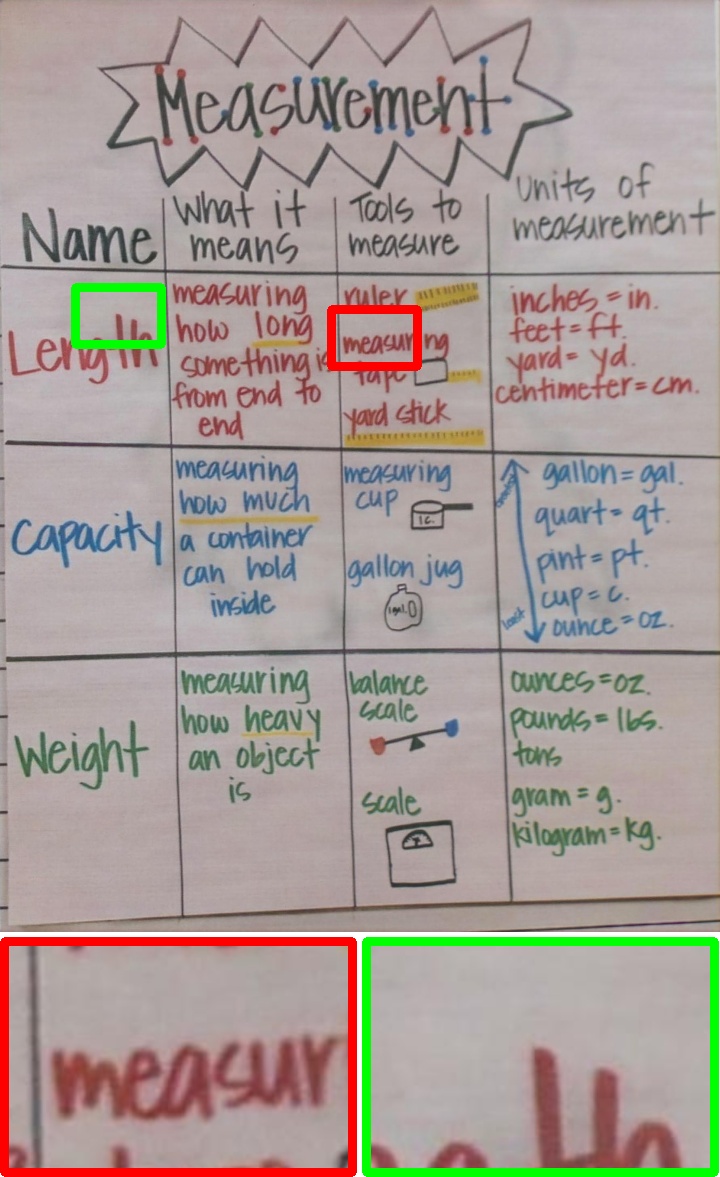 Measurement
Name
What it
means
Tools to
measure
Units of
measurement
Length
measuring
how long
something is
from end to
end
ruler
measuring
tape
yard stick
inches = in.
feet = ft.
yard = yd.
centimeter = cm.
Capacity
measuring
how much
a container
can hold
inside
measuring
cup
1c.
gallon jug
1 gal.
gallon = gal.
quart = qt.
pint = pt.
cup = c.
ounce = oz.
least
Weight
measuring
how heavy
an object
is
balance
scale
scale
ounces = oz.
pounds = lbs.
tons
gram = g.
kilogram = kg.
measur